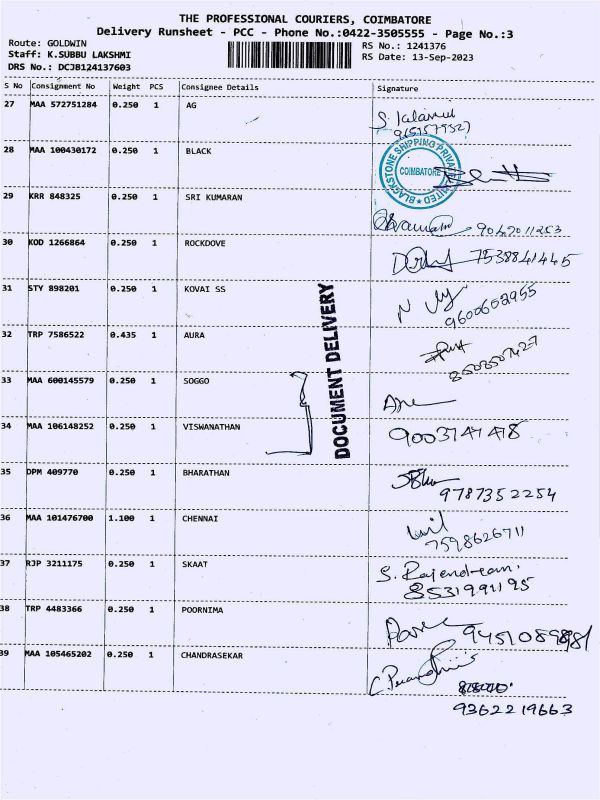 THE PROFESSIONAL COURIERS, COIMBATORE
Delivery Runsheet - PCC - Phone No.:0422-3505555 - Page No.:3
Route: GOLDWIN RS No.: 1241376
Staff: K.SUBBU LAKSHMI RS Date: 13-Sep-2023
DRS No.: DCJB124137603
S No Consignment No Weight PCS Consignee Details Signature
27 MAA 572751284 0.250 1 AG
28 MAA 100430172 0.250 1 BLACK
BLACKSTONE SHIPPING PRIVATE LIMITED
COIMBATORE
29 KRR 848325 0.250 1 SRI KUMARAN
9047011253
30 KOD 1266864 0.250 1 ROCKDOVE
7538841445
31 STY 898201 0.250 1 KOVAI SS
9600602955
32 TRP 7586522 0.435 1 AURA
33 MAA 600145579 0.250 1 SOGGO
34 MAA 106148252 0.250 1 VISWANATHAN
9003747478
DOCUMENT DELIVERY
35 DPM 409770 0.250 1 BHARATHAN
9787352254
36 MAA 101476700 1.100 1 CHENNAI
7598626711
37 RJP 3211175 0.250 1 SKAAT
S. Rajendran
8531991195
38 TRP 4483366 0.250 1 POORNIMA
39 MAA 105465202 0.250 1 CHANDRASEKAR
9362219663